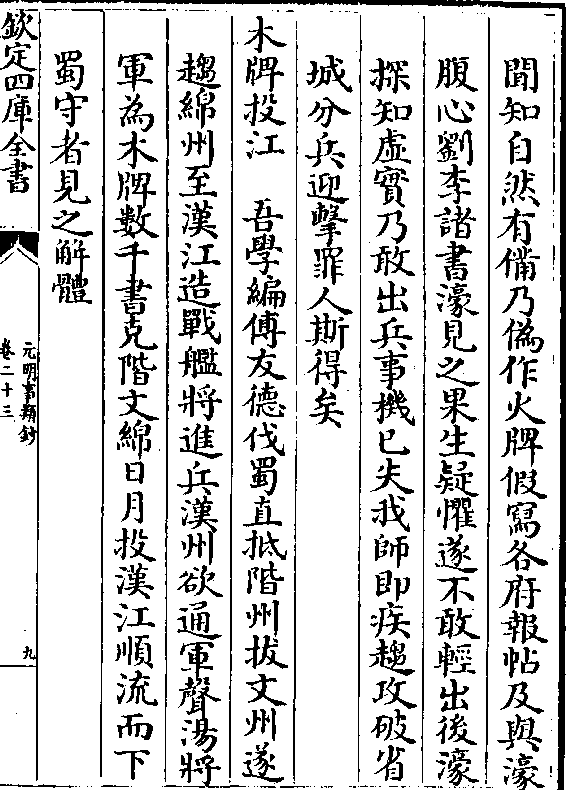 聞知自然有備乃偽作火牌假寫各府報帖及與濠
腹心劉李諸書濠見之果生疑懼遂不敢輕出後濠
探知虛實乃敢出兵事機已失我師即疾趨攻破省
城分兵迎擊罪人斯得矣
木牌投江　吾學編傅友德伐蜀直抵階州拔文州遂
趨綿州至漢江造戰艦將進兵漢州欲通軍聲湯將
軍為木牌數千書克階文綿日月投漢江順流而下
蜀守者見之解體
欽定四庫全書
元明事類鈔
卷二十三
九